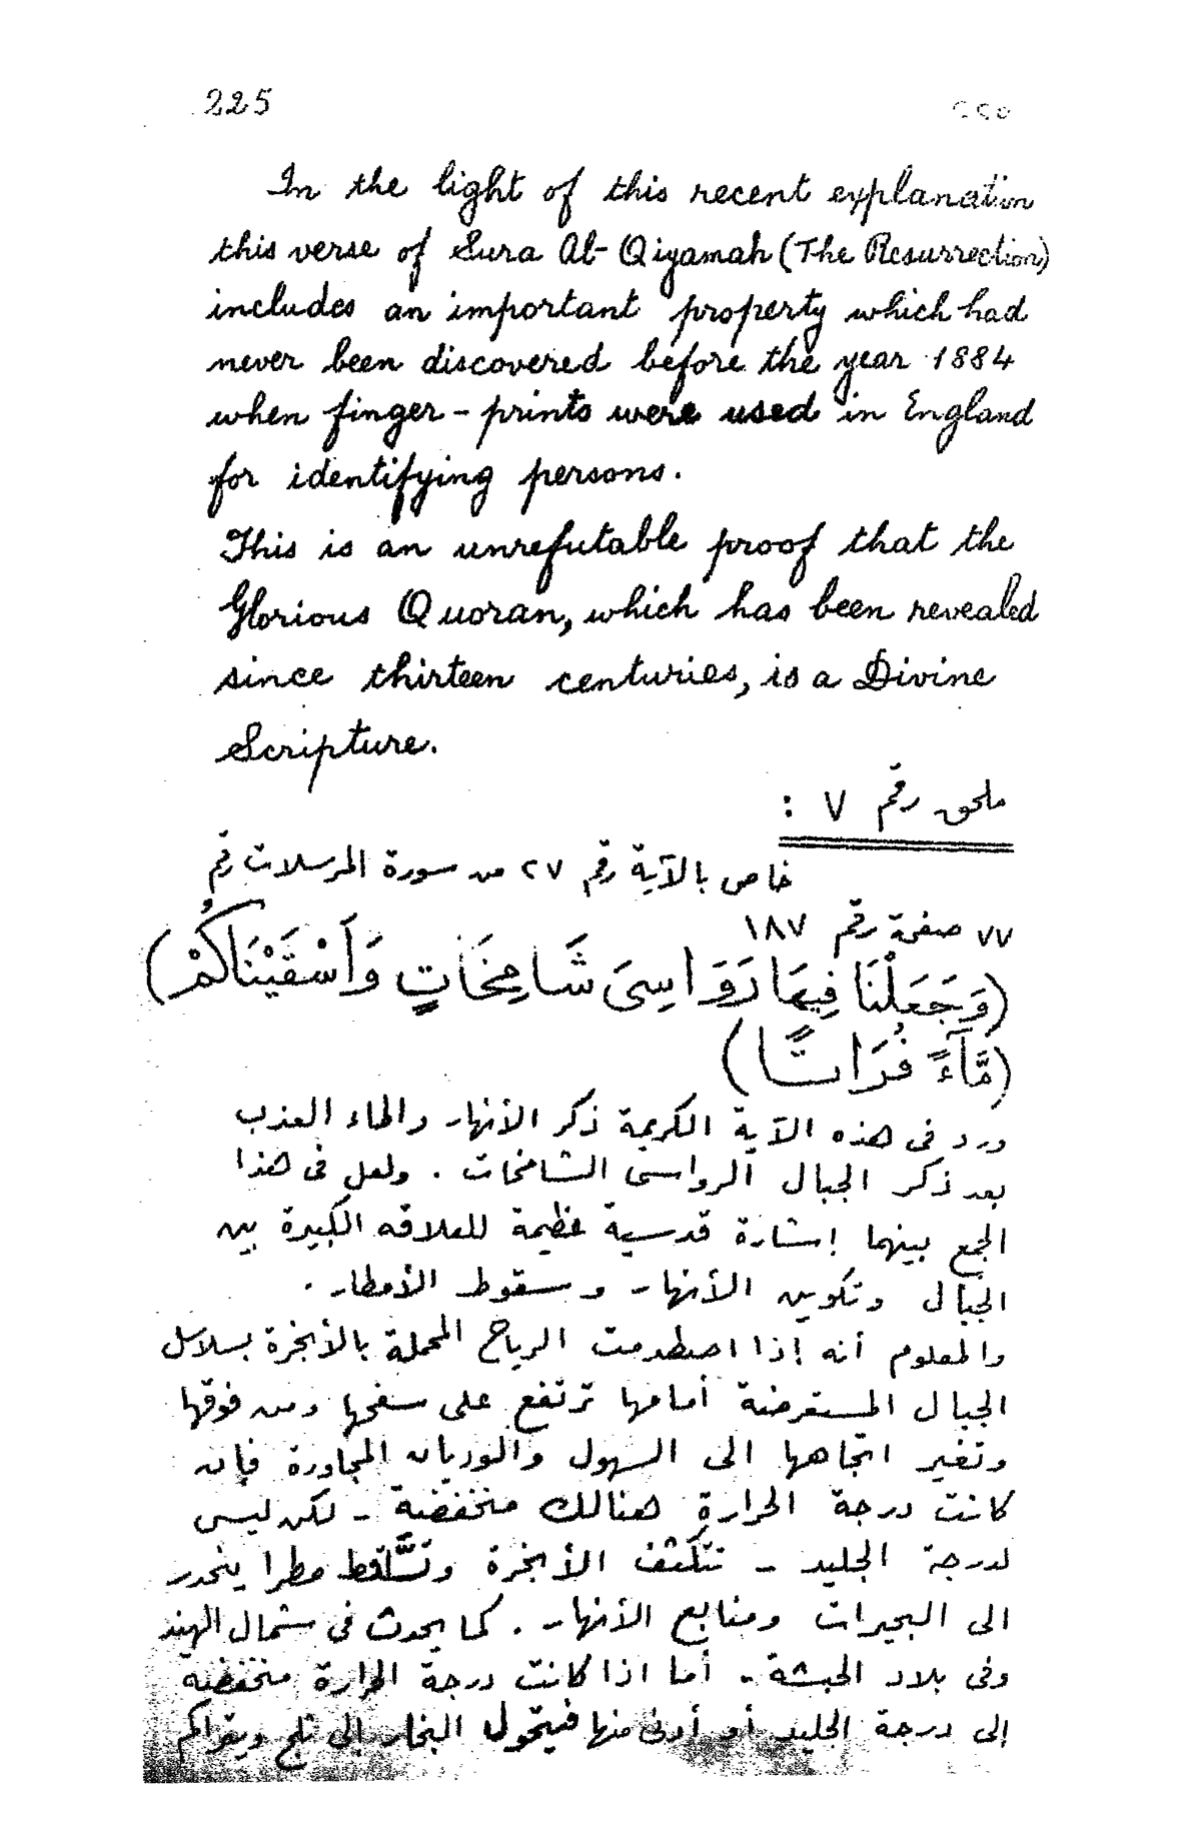 225 ٢٢٥
In the light of this recent explanation
this verse of Sura Al-Qiyamah (The Resurrection)
includes an important property which had
never been discovered before the year 1884
when finger-prints were used in England
for identifying persons.
This is an unrefutable proof that the
Glorious Quoran, which has been revealed
since thirteen centuries, is a Divine
Scripture.
ملحق رقم ٧ :
خاص بالآية رقم ٢٧ من سورة المرسلات رقم
٧٧ صفحة رقم ١٨٧
(وَجَعَلْنَا فِيهَا رَوَاسِىَ شَامِخَاتٍ وَأَسْقَيْنَاكُمْ)
(مَّآءً فُرَاتًا)
ورد فى هذه الآية الكريمة ذكر الأنهار والماء العذب
بعد ذكر الجبال الرواسى الشامخات . ولعل فى هذا
الجمع بينهما إشارة قدسية عظيمة للعلاقه الكبيرة بين
الجبال وتكوين الأنهار وسقوط الأمطار .
والمعلوم أنه إذا اصطدمت الرياح المحملة بالأبخرة بسلاسل
الجبال المستعرضة أمامها ترتفع على سفحها ومن فوقها
وتغير اتجاهها الى السهول والوديان المجاورة فإن
كانت درجة الحرارة هنالك منخفضة - لكن ليس
لدرجة الجليد - تتكثف الأبخرة وتسَّاقط مطرا ينحدر
الى البحيرات ومنابع الأنهار . كما يحدث فى شمال الهند
وفى بلاد الحبشة . أما اذا كانت درجة الحرارة منخفضه
إلى درجة الجليد أو أدنى منها فيتحول البخار إلى ثلج ويتراكم